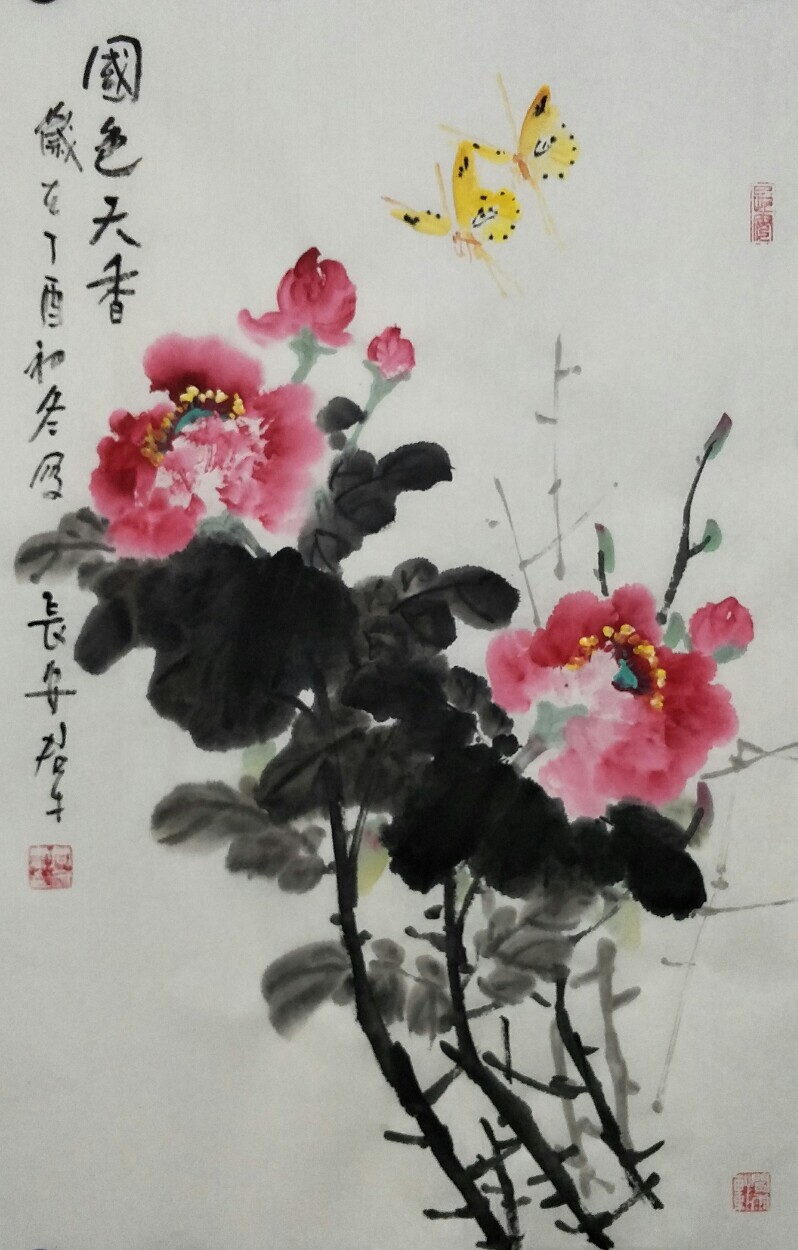 國色天香
歲在丁酉初冬月
長安